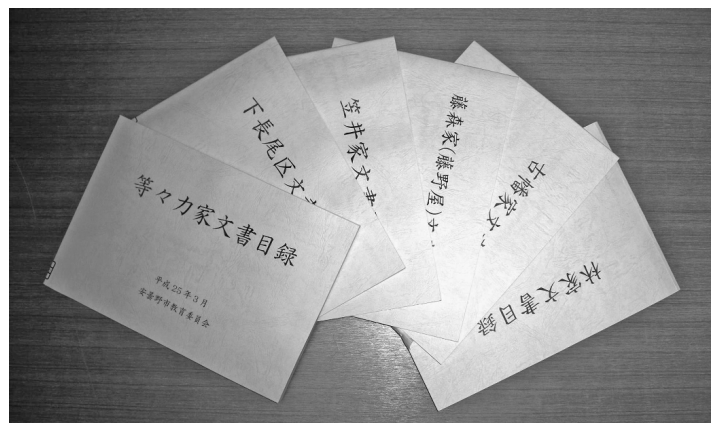 等々力家文書目録
平成25年3月
安曇野市教育委員会
下長尾区文
笠井家文書
藤森家(藤野屋)
古幡家文
林家文書目録